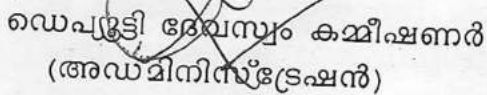 ഡെപ്യൂട്ടി ദേവസ്വം കമ്മീഷണർ
(അഡമിനിസ്ട്രേഷൻ)